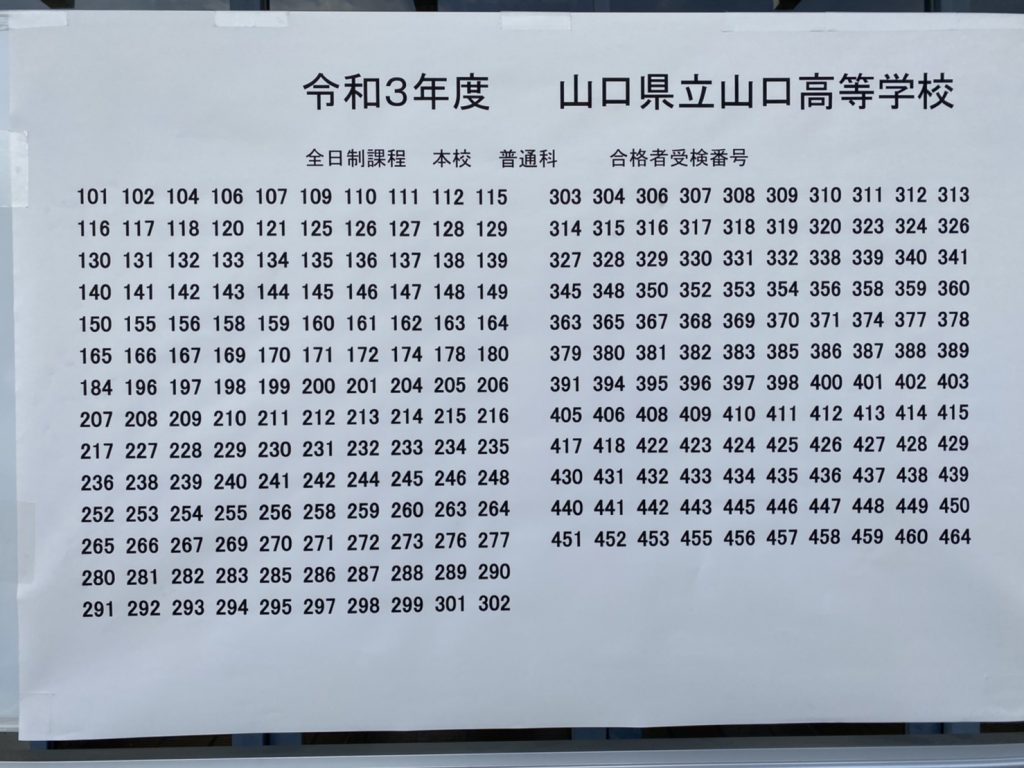 令和3年度 山口県立山口高等学校
全日制課程 本校 普通科 合格者受検番号
101 102 104 106 107 109 110 111 112 115
116 117 118 120 121 125 126 127 128 129
130 131 132 133 134 135 136 137 138 139
140 141 142 143 144 145 146 147 148 149
150 155 156 158 159 160 161 162 163 164
165 166 167 169 170 171 172 174 178 180
184 196 197 198 199 200 201 204 205 206
207 208 209 210 211 212 213 214 215 216
217 227 228 229 230 231 232 233 234 235
236 238 239 240 241 242 244 245 246 248
252 253 254 255 256 258 259 260 263 264
265 266 267 269 270 271 272 273 276 277
280 281 282 283 285 286 287 288 289 290
291 292 293 294 295 297 298 299 301 302
303 304 306 307 308 309 310 311 312 313
314 315 316 317 318 319 320 323 324 326
327 328 329 330 331 332 338 339 340 341
345 348 350 352 353 354 356 358 359 360
363 365 367 368 369 370 371 374 377 378
379 380 381 382 383 385 386 387 388 389
391 394 395 396 397 398 400 401 402 403
405 406 408 409 410 411 412 413 414 415
417 418 422 423 424 425 426 427 428 429
430 431 432 433 434 435 436 437 438 439
440 441 442 443 445 446 447 448 449 450
451 452 453 455 456 457 458 459 460 464